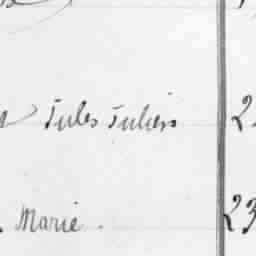 Jules Julien 2
Marie. 23